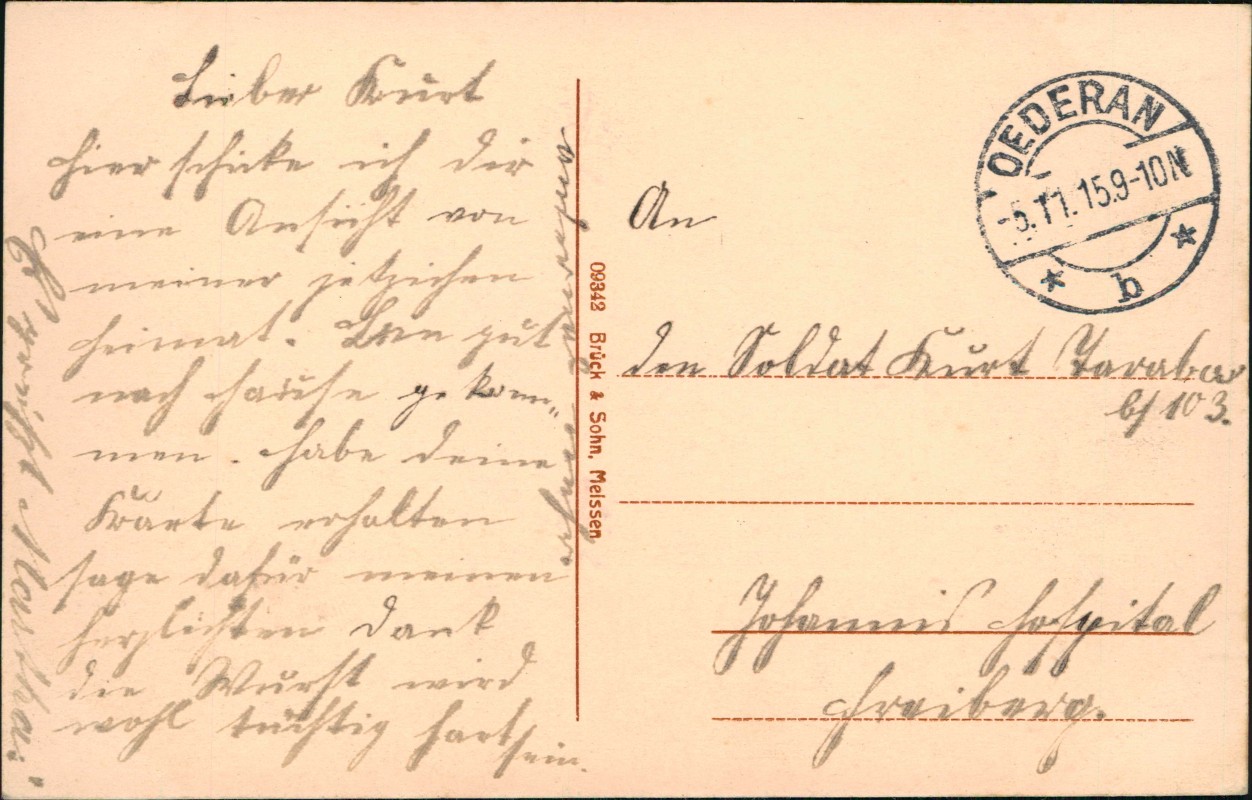 Lieber Kurt
hier schicke ich dir
eine Ansicht von
meiner jetzichen
Heimat. Bin gut
nach Hause gekom„
men. Habe deine
Karte erhalten
sage dafür meinen
herzlichsten Dank
die Wurst wird
wohl tüchtig hart sein.
Es grüßt
09342 Brück & Sohn, Meissen
OEDERAN
-5.11.15.9-10N
* b *
An
den Soldat Kurt Taraba
103.
Johannis Hospital
Freiberg.